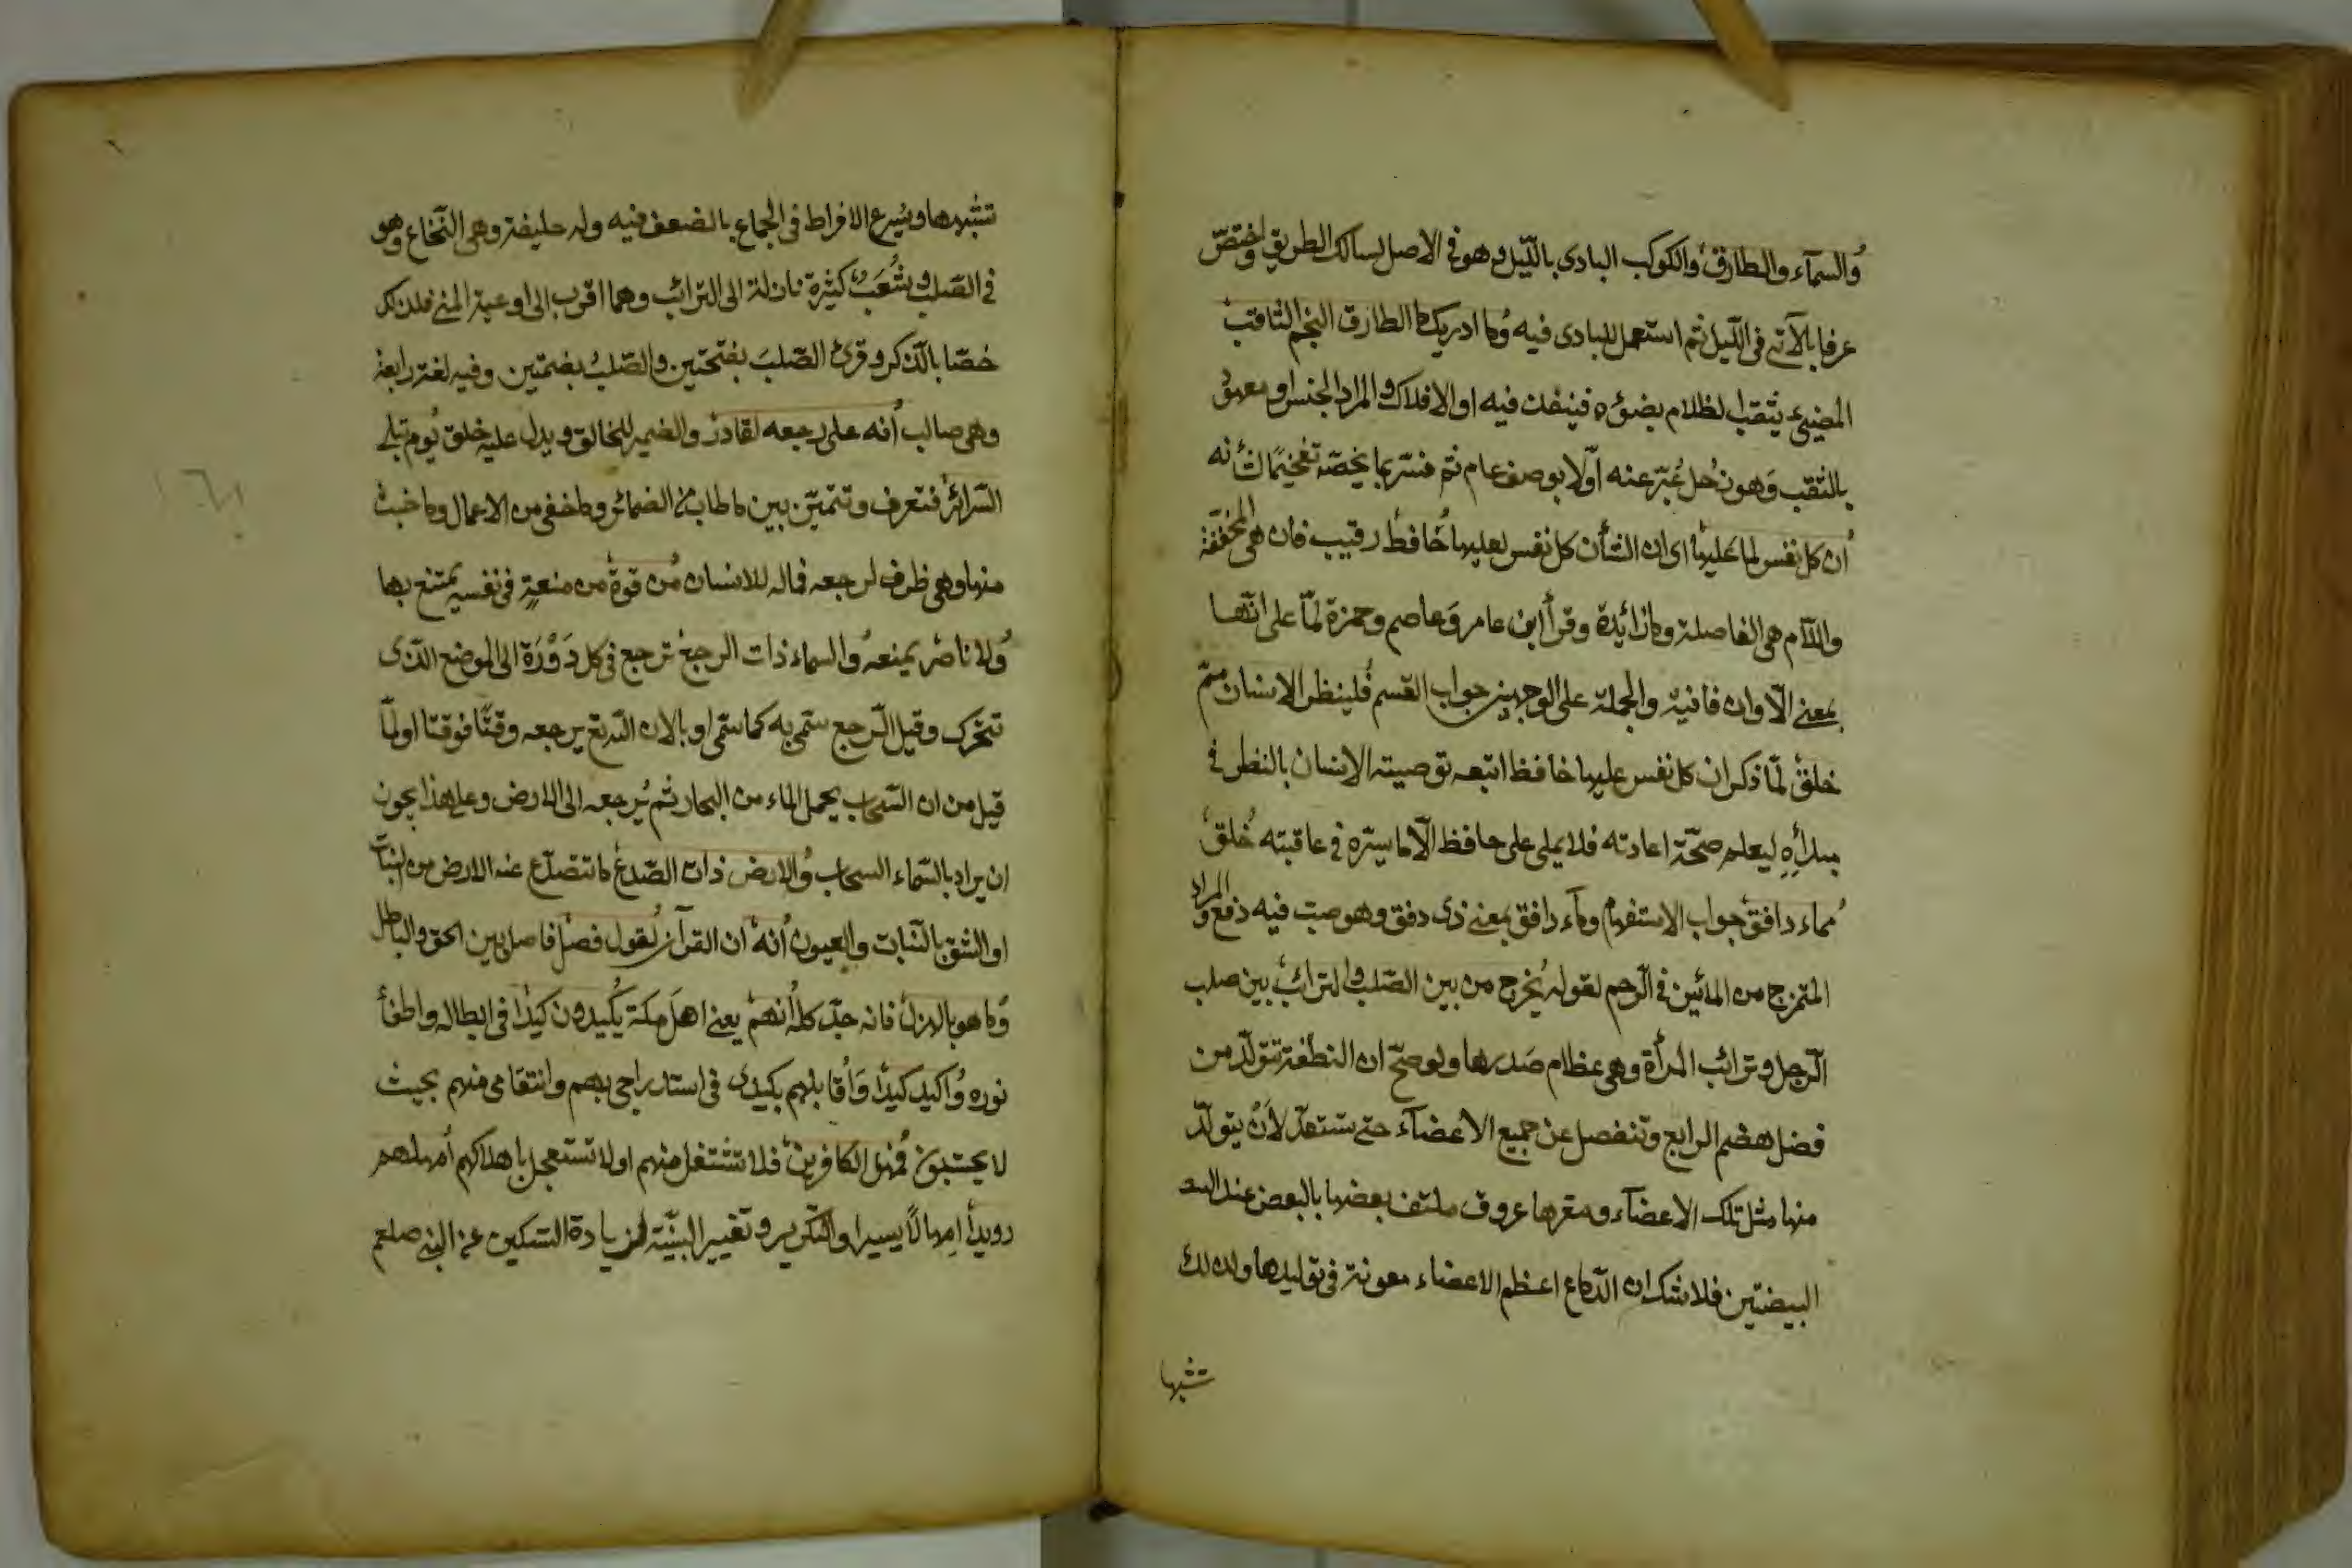 والسمآء والطارق والكوكب البادى بالليل وهو فى الاصل لسالك الطريق واختص
عرفا بالآتى فى الليل ثم استعمل للبادى فيه وما ادريك ما الطارق النجم الثاقب
المضيئ يثقب الظلام بضوئه فينفذ فيه او الافلاك والمراد الجنس او معهود
بالثقب وهو زحل عبر عنه اولا بوصف عام ثم فسر بما يخصه تفخيما لشأنه
ان كل نفس لما عليها اى ان الشأن كل نفس لعليها حافظ رقيب فان هى المخففة
واللام هى الفاصلة وما زائدة وقرأ ابن عامر وعاصم وحمزة لما على انها
بمعنى الا وان نافية والجملة على الوجهين جواب القسم فلينظر الانسان مم
خلق لما ذكر ان كل نفس عليها حافظ اتبعه توصية الانسان بالنظر فى
مبدأه ليعلم صحة اعادته فلا يملى على حافظ الا ما يسره فى عاقبته خلق
مماء دافق جواب الاستفهام وماء دافق بمعنى ذى دفق وهو صب فيه دفع والمراد
الممتزج من المائين فى الرحم لقوله يخرج من بين الصلب والترائب بين صلب
الرجل وترائب المرأة وهى عظام صدرها ولو صح ان النطفة تتولد من
فضل هضم الرابع وتنفصل عن جميع الاعضآء حتى تستعد لأن يتولد
منها مثل تلك الاعضآء ومقرها عروق ملتف بعضها بالبعض عند
البيضتين فلا شك ان الدماغ اعظم الاعضاء معونة فى توليدها ولذلك
تشبهها
تشبهها ويسرع الافراط فى الجماع بالضعف فيه وله خليفة وهى النخاع وهو
فى الصلب وشعب كثيرة نازلة الى الترائب وهما اقرب الى اوعية المنى فلذلك
خصا بالذكر وقرئ الصلب بفتحتين والصلب بضمتين وفيه لغة رابعة
وهى صالب انه على رجعه لقادر والضمير للخالق ويدل عليه خلق يوم تبلى
السرائر فتعرف وتتميز بين ما طاب من الضمائر وما خفى من الاعمال وما خبث
منها وهى ظرف لرجعه فماله للانسان من قوة من منعة فى نفسه يمتنع بها
ولا ناصر يمنعه والسماء ذات الرجع ترجع فى كل دورة الى الموضع الذى
تتحرك وقيل الرجع سمى به كما سمى اوبا لان الله تع يرجعه وقتا فوقتا او لما
قيل من ان السحاب يحمل الماء من البحار ثم يرجعه الى الارض وعلى هذا يجوز
ان يراد بالسماء السحاب والارض ذات الصدع ما تتصدع عنه الارض من النبات
او الشق بالنبات والعيون انه ان القرآن لقول فصل فاصل بين الحق والباطل
وما هو بالهزل فانه جد كله انهم يعنى اهل مكة يكيدون كيدا فى ابطاله واطفأ
نوره واكيد كيدا واقابلهم بكيدى فى استدراجى بهم وانتقامى منهم بحيث
لا يحتسبون فمهل الكافرين فلا تشتغل منهم او لا تستعجل باهلاكهم امهلهم
رويدا امهالا يسيرا والتكرير وتغيير البنية لزيادة التسكين عن النبى صلعم